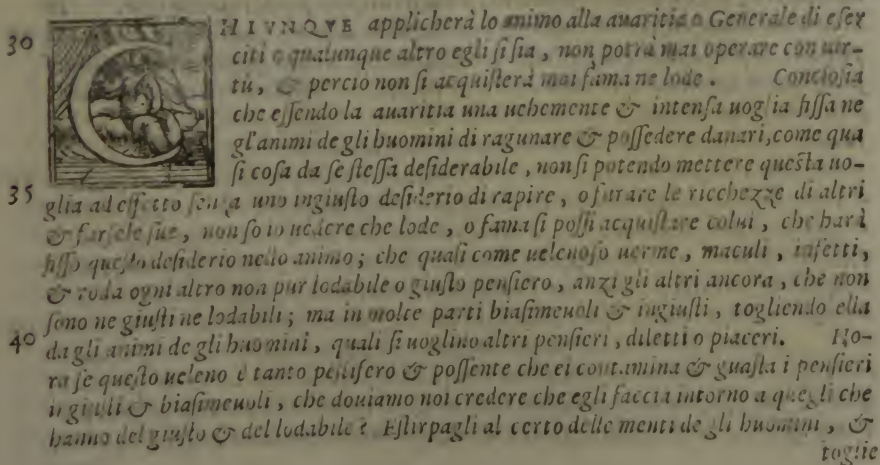 30 CHIVNQVE applicherà lo animo alla auaritia o Generale di eſer
citi o qualunque altro egli ſi ſia, non potrà mai operare con uir-
tù, & percio non ſi acquiſterà mai fama ne lode. Concioſia
che eſſendo la auaritia una uehemente & intenſa uoglia fiſſa ne
gl'animi de gli huomini di ragunare & poſſedere danari, come qua
ſi coſa da ſe ſteſſa deſiderabile, non ſi potendo mettere queſta uo-
35 glia ad effetto ſenza uno ingiuſto deſiderio di rapire, o furare le ricchezze di altri
& farſele ſue, non ſo io uedere che lode, o fama ſi poſſi acquiſtare colui, che harà
fiſſo queſto deſiderio nello animo; che quaſi come uelenoſo uerme, maculi, infetti,
& roda ogni altro non pur lodabile o giuſto penſiero, anzi gli altri ancora, che non
ſono ne giuſti ne lodabili; ma in molte parti biaſimeuoli & ingiuſti, togliendo ella
40 da gli animi de gli huomini, quali ſi uoglino altri penſieri, diletti o piaceri. Ho-
ra ſe queſto ueleno è tanto peſtifero & poſſente che ei contamina & guaſta i penſieri
ingiuſti & biaſimeuoli, che douiamo noi credere che egli faccia intorno a quegli che
hanno del giuſto & del lodabile? Eſtirpagli al certo delle menti de gli huomini, &
toglie